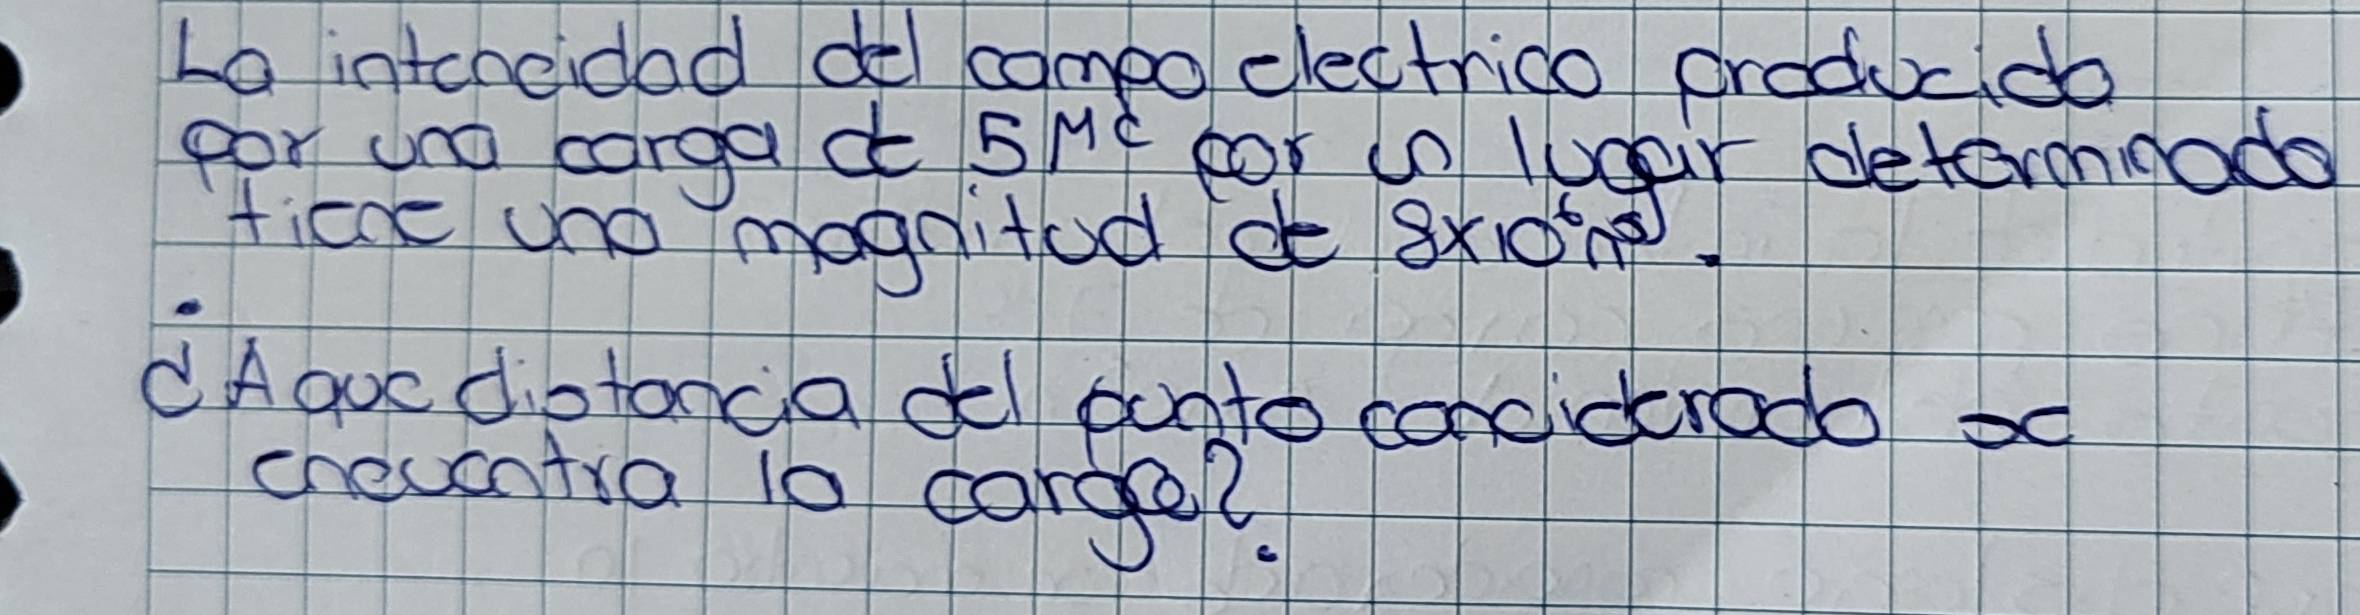 La intencidad del campo electrico producido
por una carga de 5Mc por un lugar determinado
tiene una magnitud de 8x10⁶
¿A que distancia del punto conciderado se
encuentra la carga?